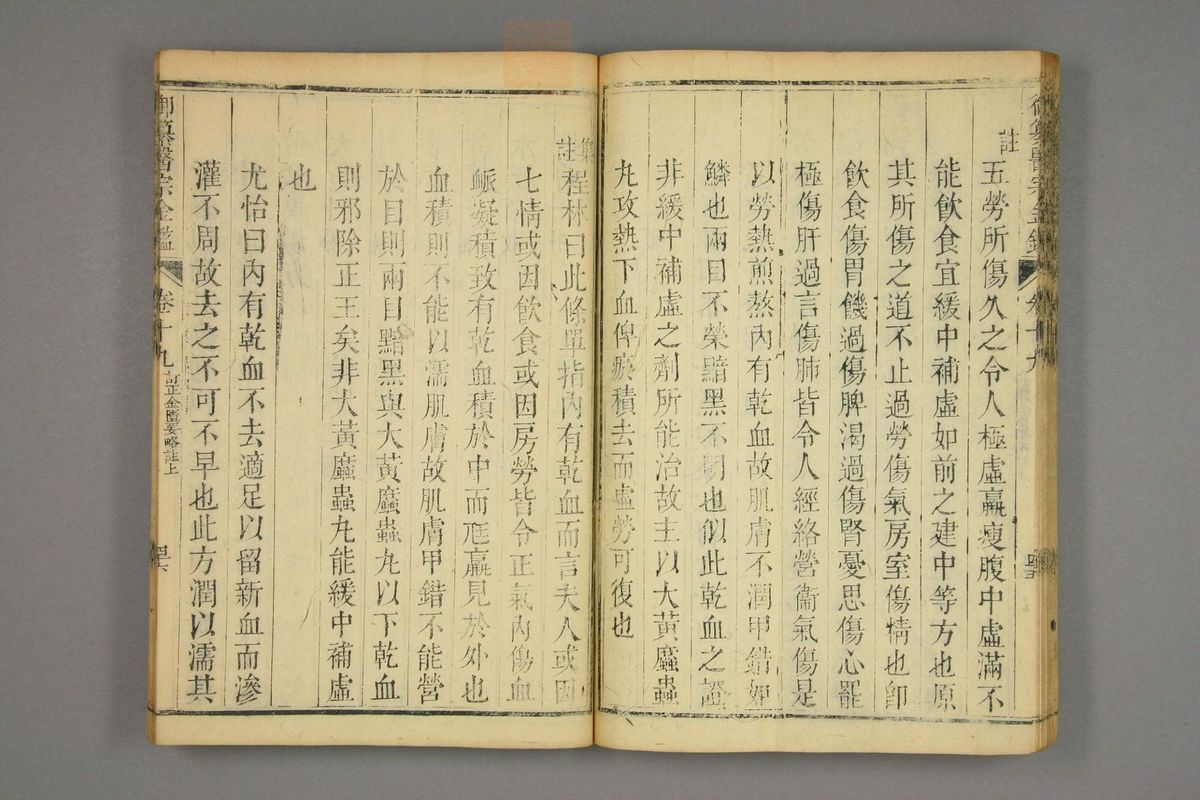 御纂醫宗金鑑 卷十九
註
五勞所傷久之令人極虛羸瘦腹中虛滿不
能飲食宜緩中補虛如前之建中等方也原
其所傷之道不止過勞傷氣房室傷精也卽
飲食傷胃饑過傷脾渴過傷腎憂思傷心罷
極傷肝過言傷肺皆令人經絡營衞氣傷是
以勞熱煎熬內有乾血故肌膚不潤甲錯如
鱗也兩目不榮黯黑不明也似此乾血之證
非緩中補虛之劑所能治故主以大黃䗪蟲
丸攻熱下血俾瘀積去而虛勞可復也
集註
程林曰此條單指內有乾血而言夫人或因
七情或因飲食或因房勞皆令正氣內傷血
脈凝積致有乾血積於中而尫羸見於外也
血積則不能以濡肌膚故肌膚甲錯不能營
於目則兩目黯黑與大黃䗪蟲丸以下乾血
則邪除正王矣非大黃䗪蟲丸能緩中補虛
也
尤怡曰內有乾血不去適足以留新血而滲
灌不周故去之不可不早也此方潤以濡其
御纂醫宗金鑑 卷十九 訂正金匱要略註上